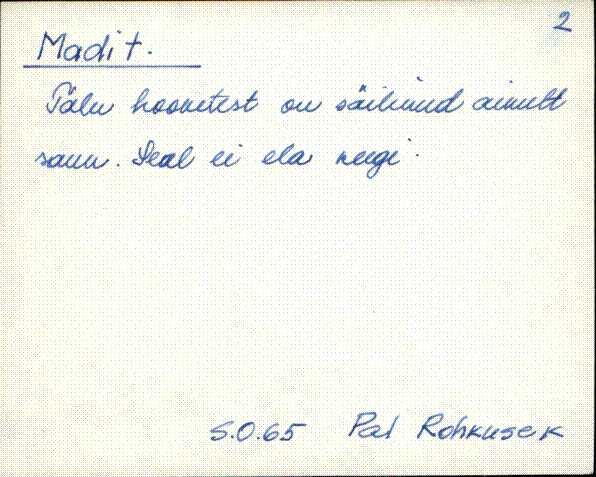 2
Madit.
Talu hoonetest on säilinud ainult
saun. Seal ei ela keegi.
S.O.65 Pal Rohkusek